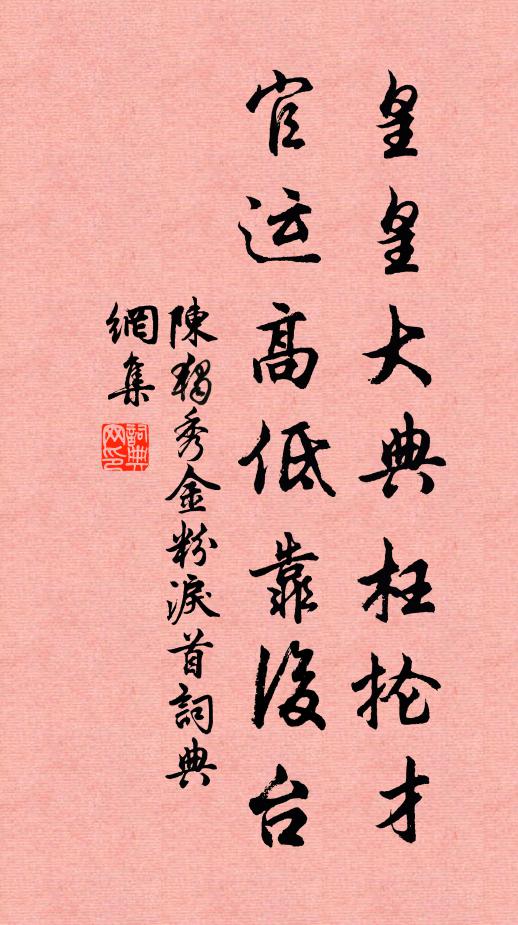 皇皇大典枉抡才
官运高低靠後台
陳獨秀金粉淚首詞典
網集
詞典网印